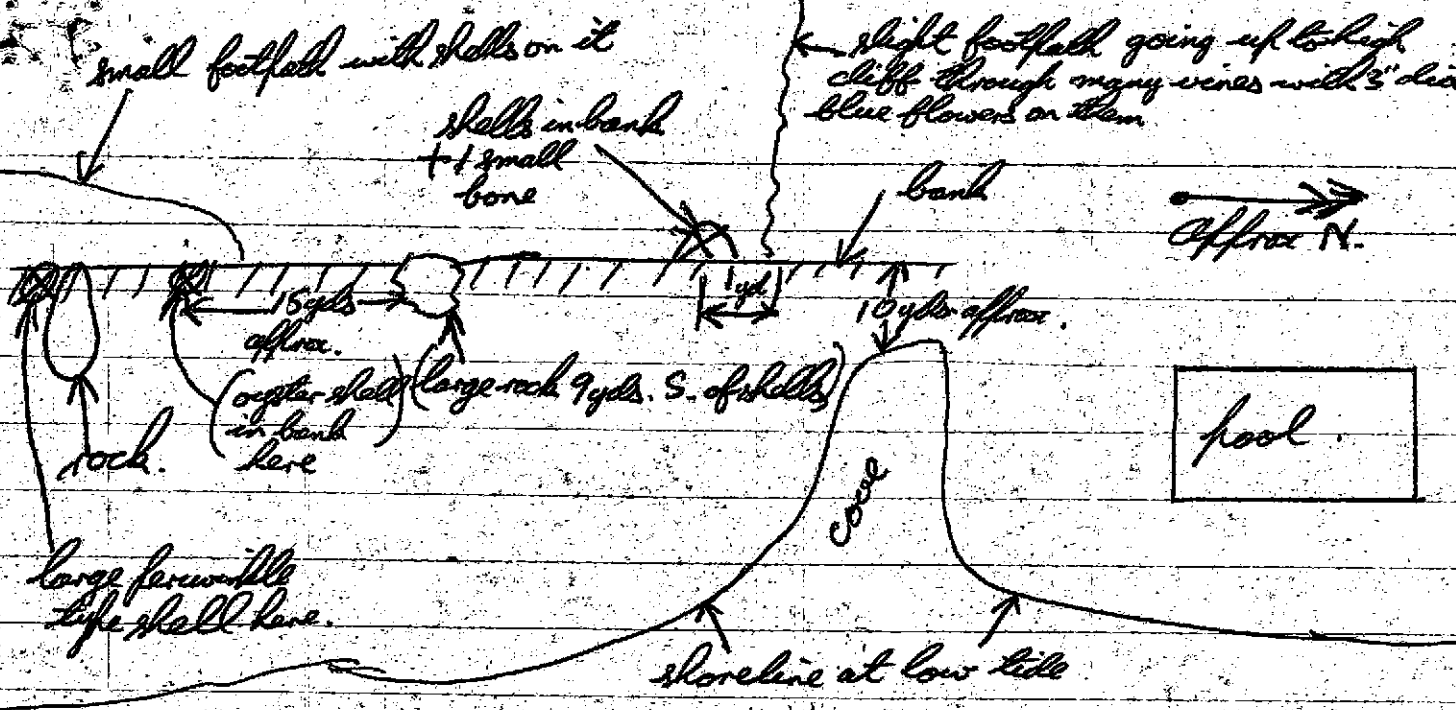 small footpath with shells on it
slight footpath going up to high
cliff through many vines with 3" dia
blue flowers on them
shells in bank
+ 1 small
bone
bank
approx N.
1 yd
15 yds
approx.
10 yds approx.
(oyster shell)
in bank
here
(large rock 9 yds. S. of shells)
rock.
cove
pool.
large periwinkle
type shell here.
shoreline at low tide